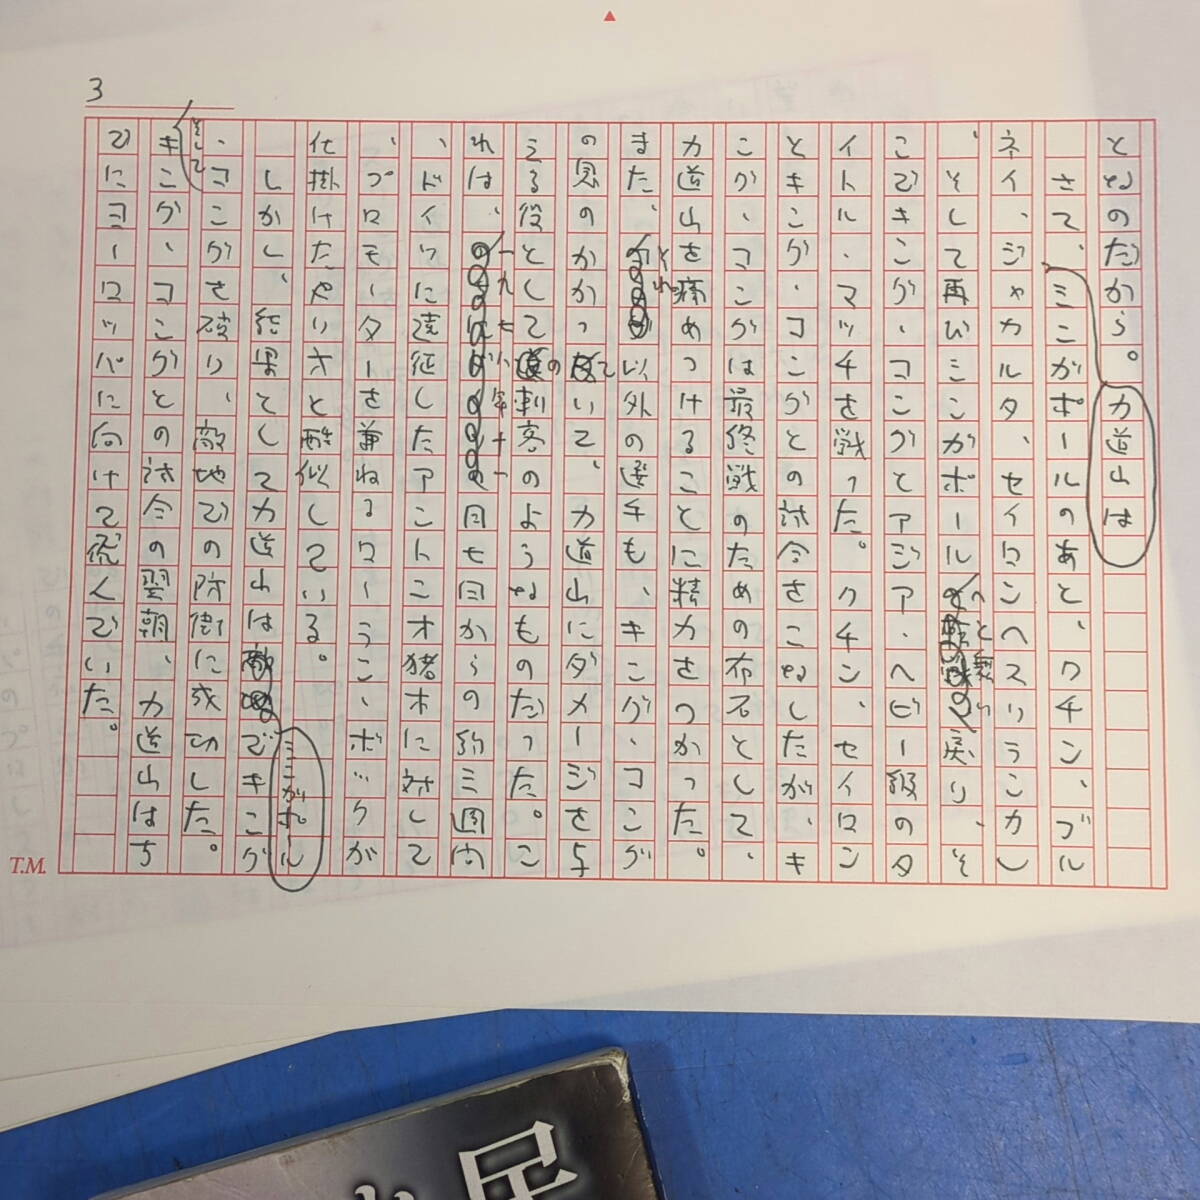 3
となのだから。
さて、力道山はシンガポールのあと、クチン、ブル
ネイ、ジャカルタ、セイロン(スリランカ)
、そして再びシンガポールへと舞い戻り、そ
こでキング・コングとアジア・ヘビー級のタ
イトル・マッチを戦った。クチン、セイロン
とキング・コングとの試合をこなしたが、キ
ング・コングは最終戦のための布石として、
力道山を痛めつけることに精力をつかった。
また、それ以外の選手も、キング・コング
の息のかかっていて、力道山にダメージを与
える役としての刺客のようなものだった。こ
れは、一九七八年十一月七日からの約三週間
、ドイツに遠征したアントニオ猪木に対して
、プロモーターを兼ねるローラン・ボックが
仕掛けたやり方と酷似している。
しかし、結果として力道山はシンガポールでキング
・コングを破り、敵地での防衛に成功した。
そしてキング・コングとの試合の翌朝、力道山はす
ぐにヨーロッパに向けて飛んでいた。
T.M.